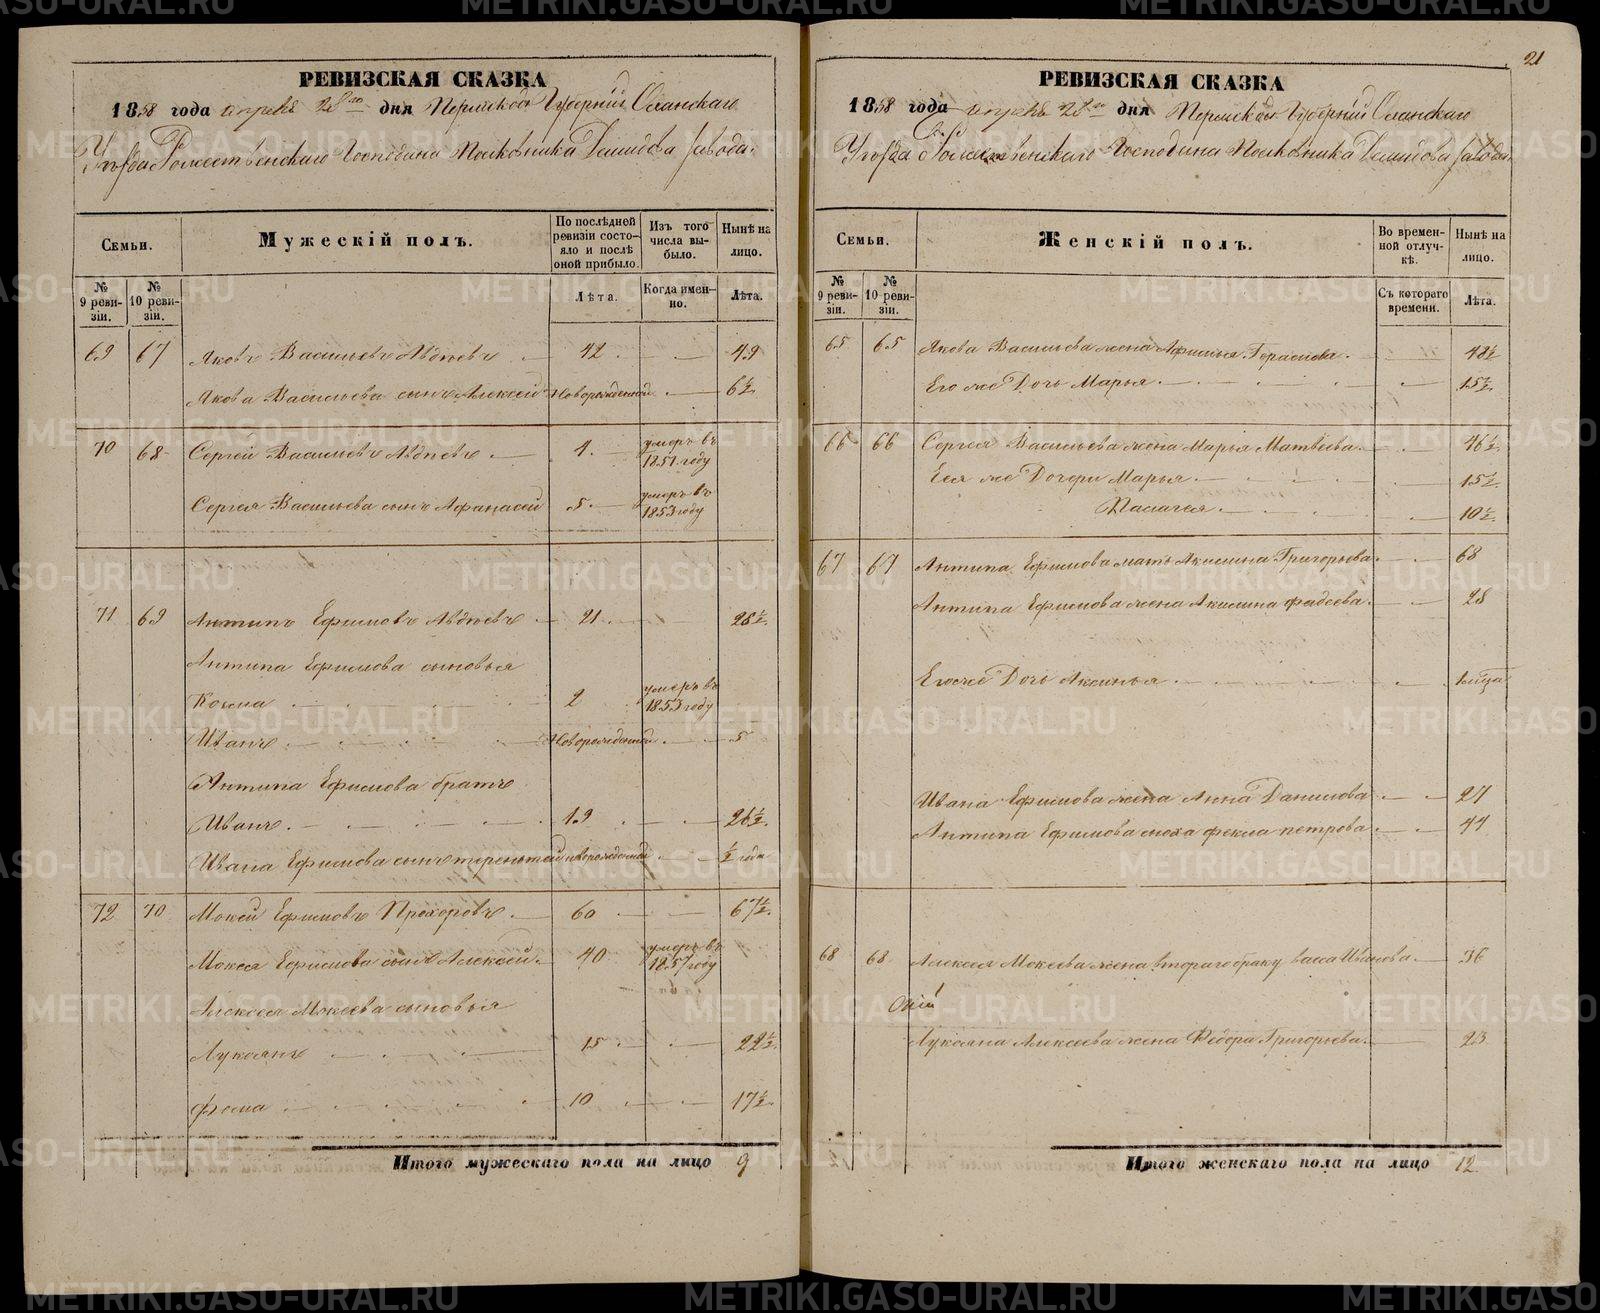 21
РЕВИЗСКАЯ СКАЗКА
1858 года апреля 28го дня Пермской Губернiи Осинскаго
Уѣзда Рожественскаго Господина Полковника Демидова завода.
Семьи.
Мужескiй полъ.
По послѣдней ревизiи состояло и послѣ оной прибыло.
Изъ того числа выбыло.
Нынѣ на лицо.
№ 9 ревизiи.
№ 10 ревизiи.
Лѣта.
Когда именно.
Лѣта.
69 67 Яковъ Васильевъ Авдѣевъ 42 49
Якова Васильева сынъ Алексей Новорожденной 6½
70 68 Сергей Васильевъ Авдѣевъ умеръ въ 1851 году
Сергея Васильева сынъ Афанасей 5 умеръ въ 1853 году
71 69 Антипъ Ефимовъ Авдѣевъ 21 28½
Антипа Ефимова сыновья
Козма 2 умеръ въ 1853 году
Иванъ Новорожденной 5
Антипа Ефимова братъ
Иванъ 19 26½
Ивана Ефимова сынъ терентей новорожденной ½ года
72 70 Мокей Ефимовъ Прохоровъ 60 67½
Мокея Ефимова сынъ Алексей 40 умеръ въ 1857 году
Алексея Мокеева сыновья
Лукоянъ 15 22½
фома 10 17½
Итого мужескаго пола на лицо 9
РЕВИЗСКАЯ СКАЗКА
1858 года апреля 28го дня Пермской Губернiи Осинскаго
Уѣзда Рожественскаго Господина Полковника Демидова завода.
Семьи.
Женскiй полъ.
Во временной отлучкѣ.
Нынѣ на лицо.
№ 9 ревизiи.
№ 10 ревизiи.
Съ котораго времени.
Лѣта.
65 65 Якова Васильева жена Афимья Герасимова 48½
Его же Дочь Марья 15½
66 66 Сергея Васильева жена Марья Матвѣева 46½
Ея же Дочери Марья 15½
Палагея 10½
67 67 Антипа Ефимова мать Акилина Григорьева 68
Антипа Ефимова жена Акилина фадеева 28
Его же Дочь Аксинья
Ивана Ефимова жена Анна Данилова 27
Антипа Ефимова сноха фекла петрова
68 68 Алексея Мокеева жена втораго браку Иванова 36
Лукояна Алексеева жена Федора Григорьева 23
Итого женскаго пола на лицо 12
METRIKI.GASO-URAL.RU